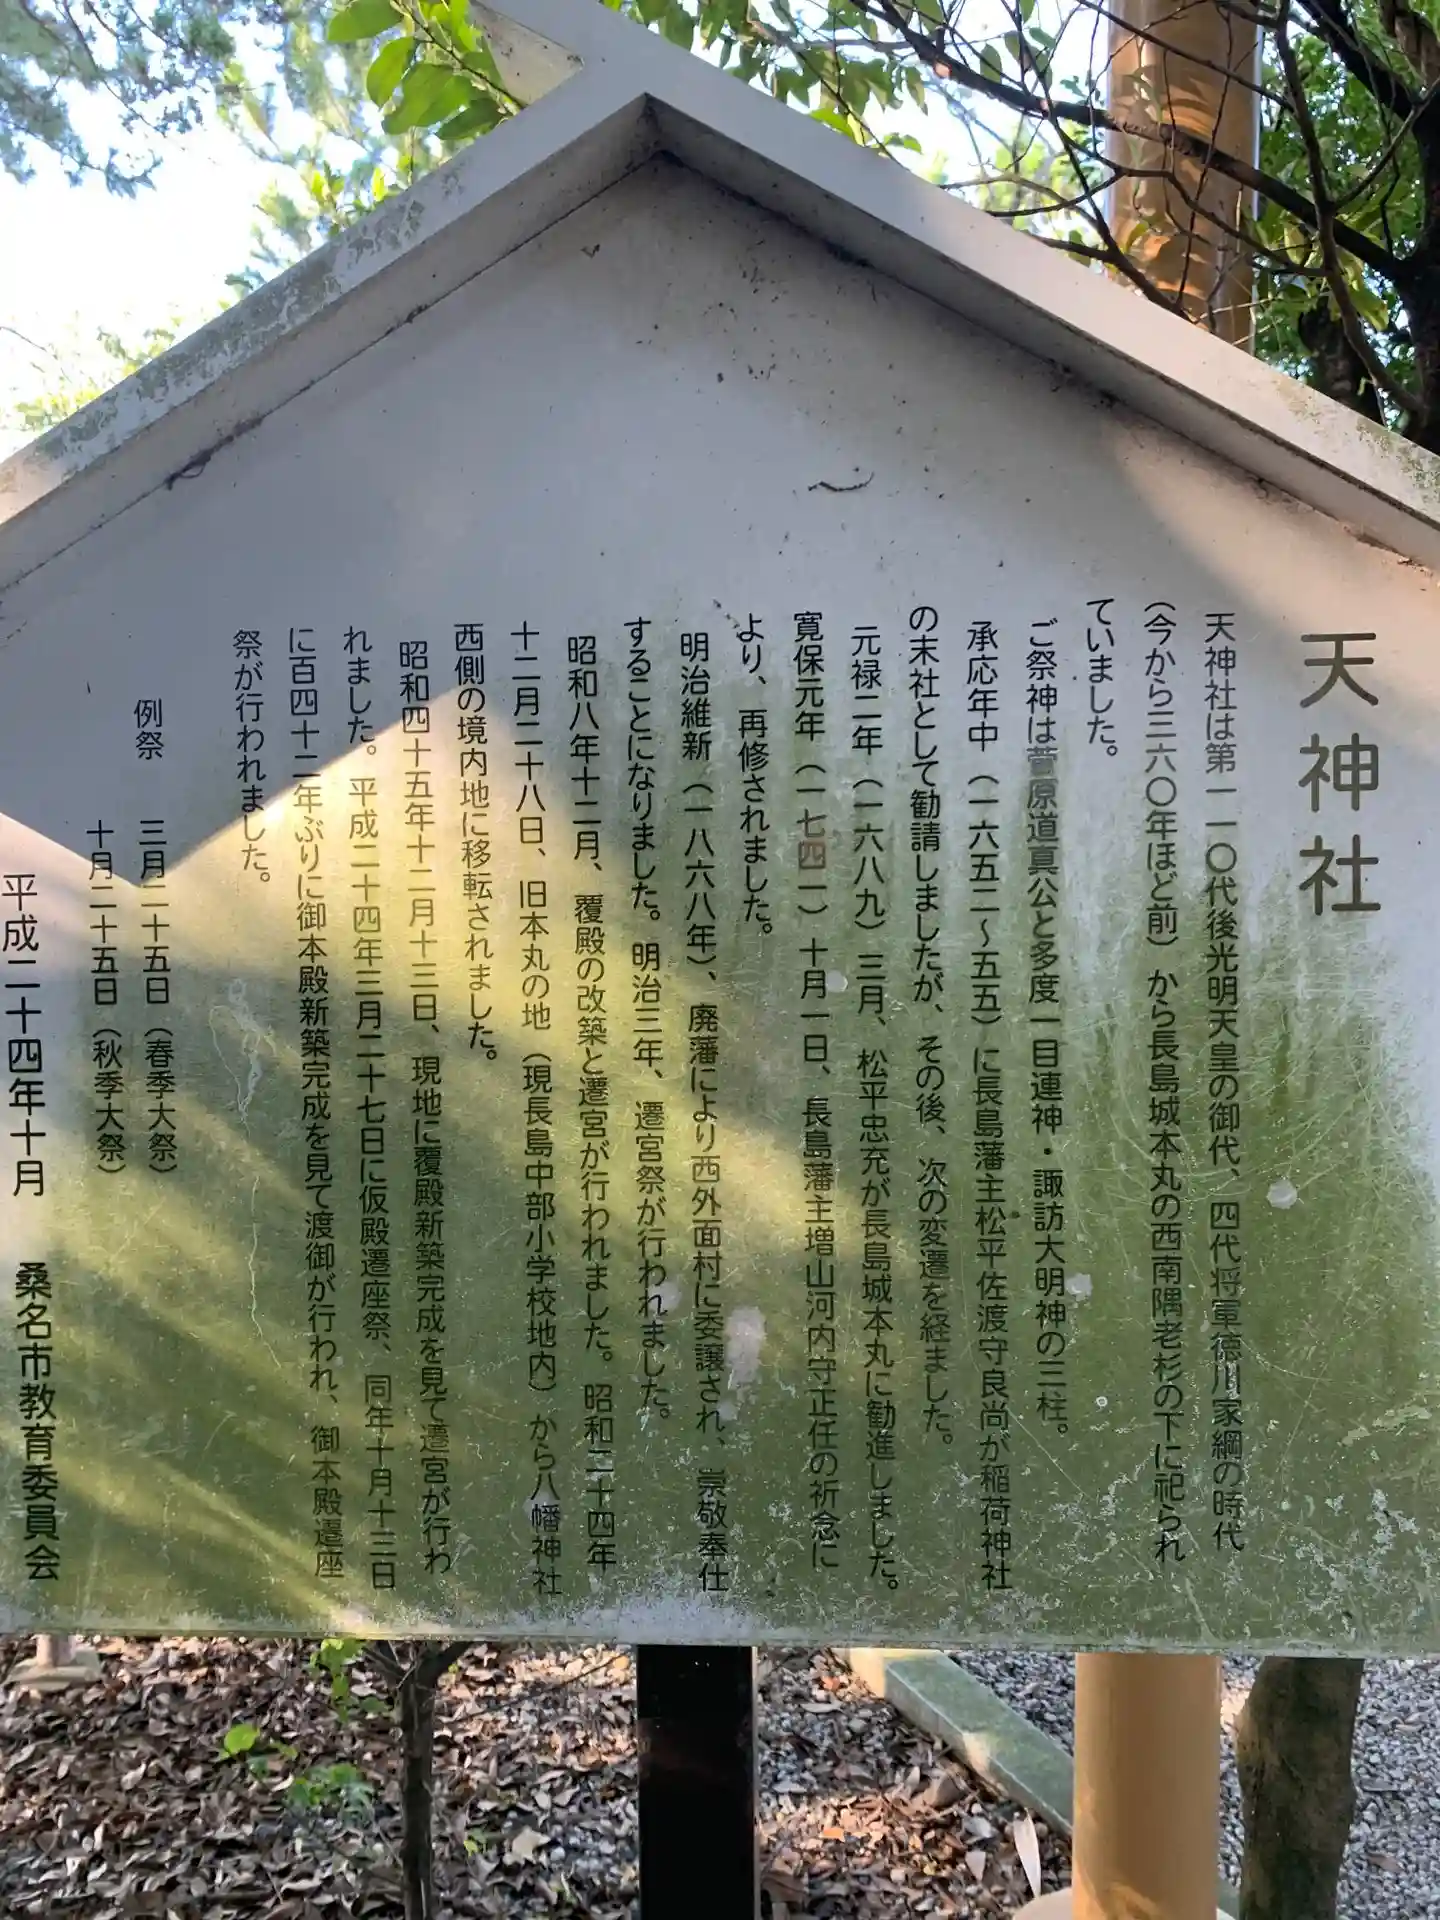 天神社
天神社は第一一〇代後光明天皇の御代、四代将軍徳川家綱の時代
（今から三六〇年ほど前）から長島城本丸の西南隅老杉の下に祀られ
ていました。
ご祭神は菅原道真公と多度一目連神・諏訪大明神の三柱。
承応年中（一六五二～五五）に長島藩主松平佐渡守良尚が稲荷神社
の末社として勧請しましたが、その後、次の変遷を経ました。
元禄二年（一六八九）三月、松平忠充が長島城本丸に勧進しました。
寛保元年（一七四一）十月一日、長島藩主増山河内守正任の祈念に
より、再修されました。
明治維新（一八六八年）、廃藩により西外面村に委譲され、崇敬奉仕
することになりました。明治三年、遷宮祭が行われました。
昭和八年十二月、覆殿の改築と遷宮が行われました。昭和二十四年
十二月二十八日、旧本丸の地（現長島中部小学校地内）から八幡神社
西側の境内地に移転されました。
昭和四十五年十二月十三日、現地に覆殿新築完成を見て遷宮が行わ
れました。平成二十四年三月二十七日に仮殿遷座祭、同年十月十三日
に百四十二年ぶりに御本殿新築完成を見て渡御が行われ、御本殿遷座
祭が行われました。
例祭　三月二十五日（春季大祭）
十月二十五日（秋季大祭）
平成二十四年十月　桑名市教育委員会